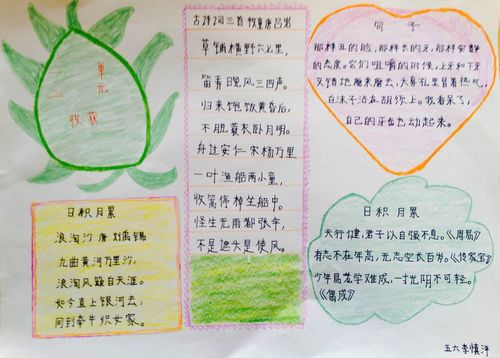 单元
一
收获
古诗词三首 牧童 唐 吕岩
草铺横野六七里，
笛弄晚风三四声。
归来饱饭黄昏后，
不脱蓑衣卧月明。
舟过安仁 宋 杨万里
一叶渔船两小童，
收篙停棹坐船中。
怪生无雨都张伞，
不是遮头是使风。
句子
那样丑的脸，那样长的牙，那样安静
的态度。它们咀嚼的时候，上牙和下牙
交错地磨来磨去，大鼻孔里冒着热气，
白沫子沾在胡须上。我看呆了，
自己的牙齿也动起来。
日积月累
浪淘沙 唐 刘禹锡
九曲黄河万里沙，
浪淘风簸自天涯。
如今直上银河去，
同到牵牛织女家。
日积月累
天行健，君子以自强不息。《周易》
有志不在年高，无志空长百岁。《传家宝》
少年易老学难成，一寸光阴不可轻。
《偶成》
五六 李慎泽